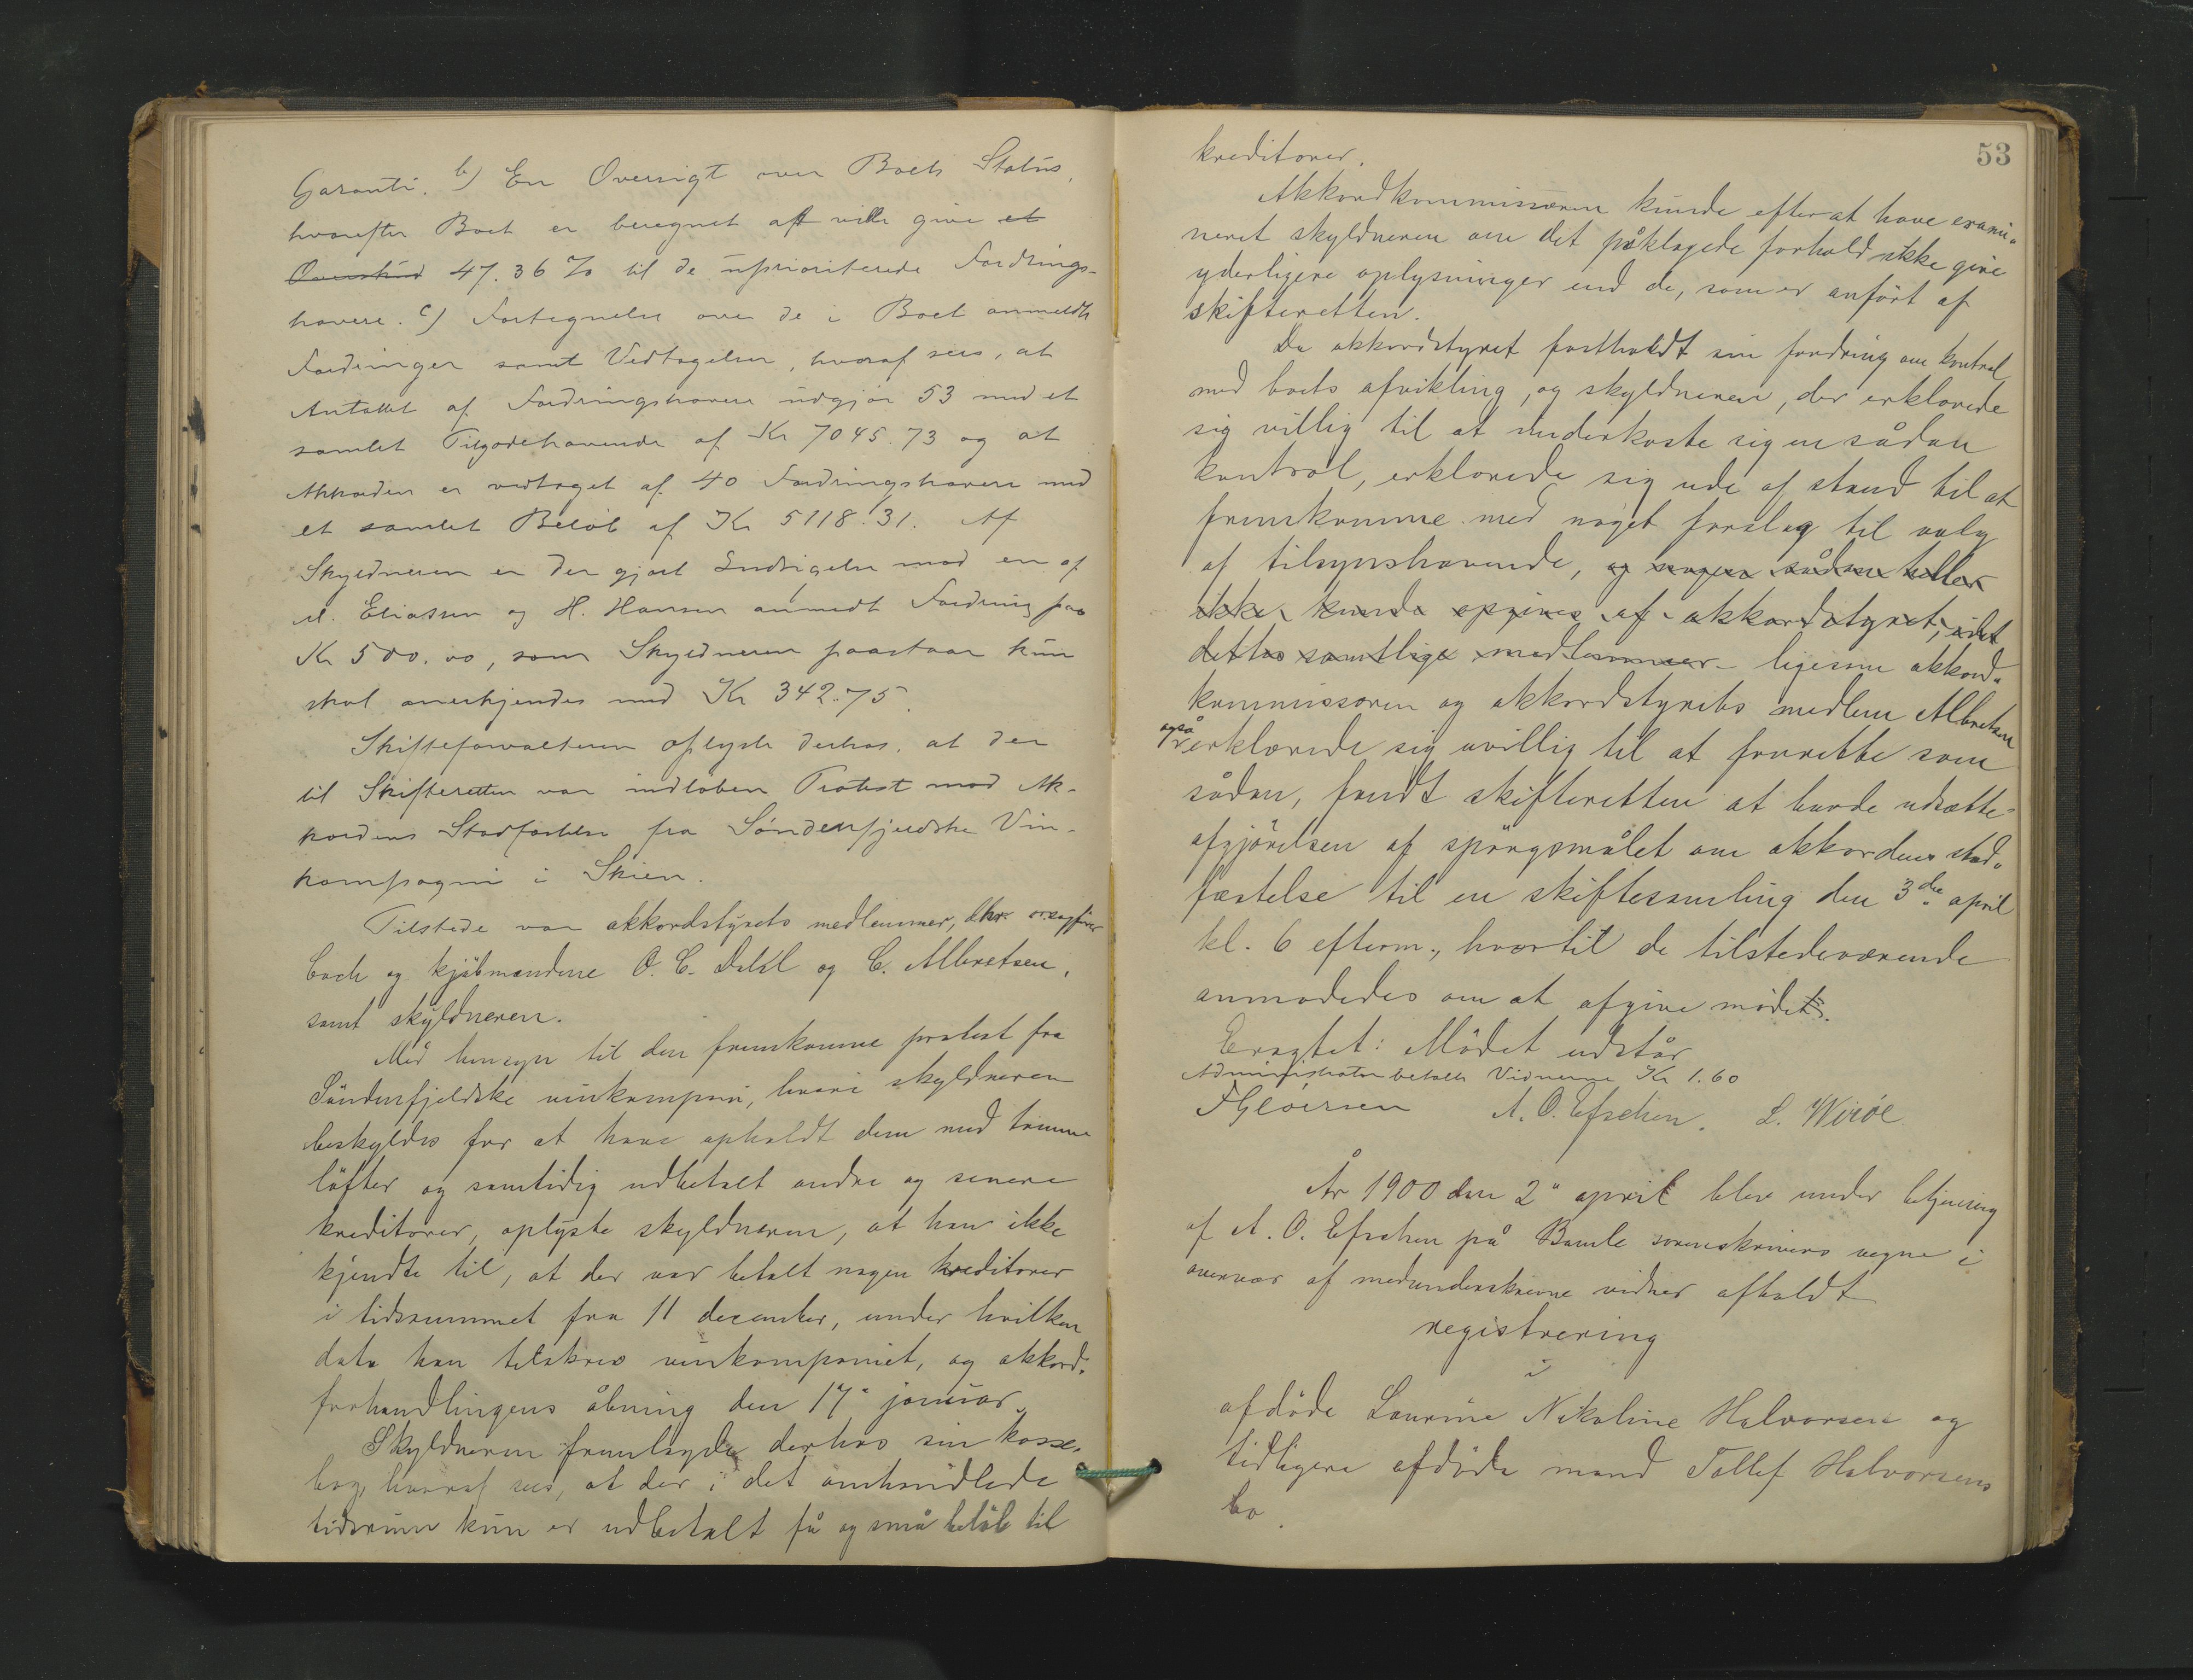 Garanti. b) En Oversigt over Boets Status,
hvorefter Boet er beregnet at ville give et
Overskud 47.36 % til de uprioriterede Fordrings-
havere. c) Fortegnelse over de i Boet anmeldte
Fordringer samt Vedtagelser, hvoraf sees, at
Antallet af Fordringshavere udgjør 53 med et
samlet Tilgodehavende af Kr 7045.73 og at
Akkorden er vedtaget af 40 Fordringshavere med
et samlet Beløb af Kr 5118.31. Af
Skyldneren er der gjort Indsigelse mod en af
Eliassen og H. Hansen anmeldt Fordring paa
Kr 500.00, som Skyldneren paastaar kun
skal anerkjendes med Kr 342.75.
Skifteforvalteren oplyste derhos, at der
til Skifteretten var indløben Protest mod Ak-
kordens Stadfæstelse fra Søndenfjeldske Vin-
kompagni i Skien.
Tilstede var akkordstyrets medlemmer, dhr. orsagfører
Coch og kjøbmændene O. C. Dahl og C. Albretsen,
samt skyldneren.
Med hensyn til den fremkomne protest fra
Söndenfjeldske vinkompani, hvori skyldneren
beskyldes for at have opholdt dem med tomme
löfter og samtidig udbetalt andre og senere
kreditorer, oplyste skyldneren, at han ikke
kjendte til, at der var betalt nogen kreditorer
i tidsrummet fra 11 december, under hvilken
dato han tilskrev vinkompaniet, og akkord-
forhandlingens åbning den 17. januar.
Skyldneren fremlagde derhos sin kasse-
bog, hvoraf sees, at der i det omhandlede
tidsrum kun er udbetalt få og små beløb til
53
kreditorer.
Akkordkommissæren kunde efter at have exami-
neret skyldneren om det påklagede forhold ikke give
yderligere oplysninger end de, som er anført af
skifteretten.
Da akkordstyret fastholdt sin fordring om kontrol
med boets afvikling, og skyldneren, der erklærede
sig villig til at underkaste sig en sådan
kontrol, erklærede sig ude af stand til at
fremkomme med noget forslag til valg
af tilsynshavende, og nogen sådan heller
ikke kunde opgives af akkordstyret, idet
dettes samtlige medlemmer ligesom akkord-
kommissæren og akkordstyrets medlem Albretsen
også erklærede sig uvillig til at forrette som
sådan, fandt skifteretten at burde udsætte
afgjörelsen af spörgsmålet om akkordens stad-
fæstelse til en skiftesamling den 3die april
kl. 6 efterm., hvortil de tilstedeværende
anmodedes om at afgive mödet.
Eragtet: Mödet udstår
Administrator betalte Vidnerne Kr 1.60
F Gløersen A. O. Efschen. L. Wirøe
År 1900 den 2. april blev under betjening
af A. O. Efschen på Bamle sorenskrivers vegne i
overvær af medunderskrevne vidner afholdt
registrering
i
afdöde Laurine Nikoline Halvorsen og
tidligere afdöde mand Tollef Halvorsens
bo.